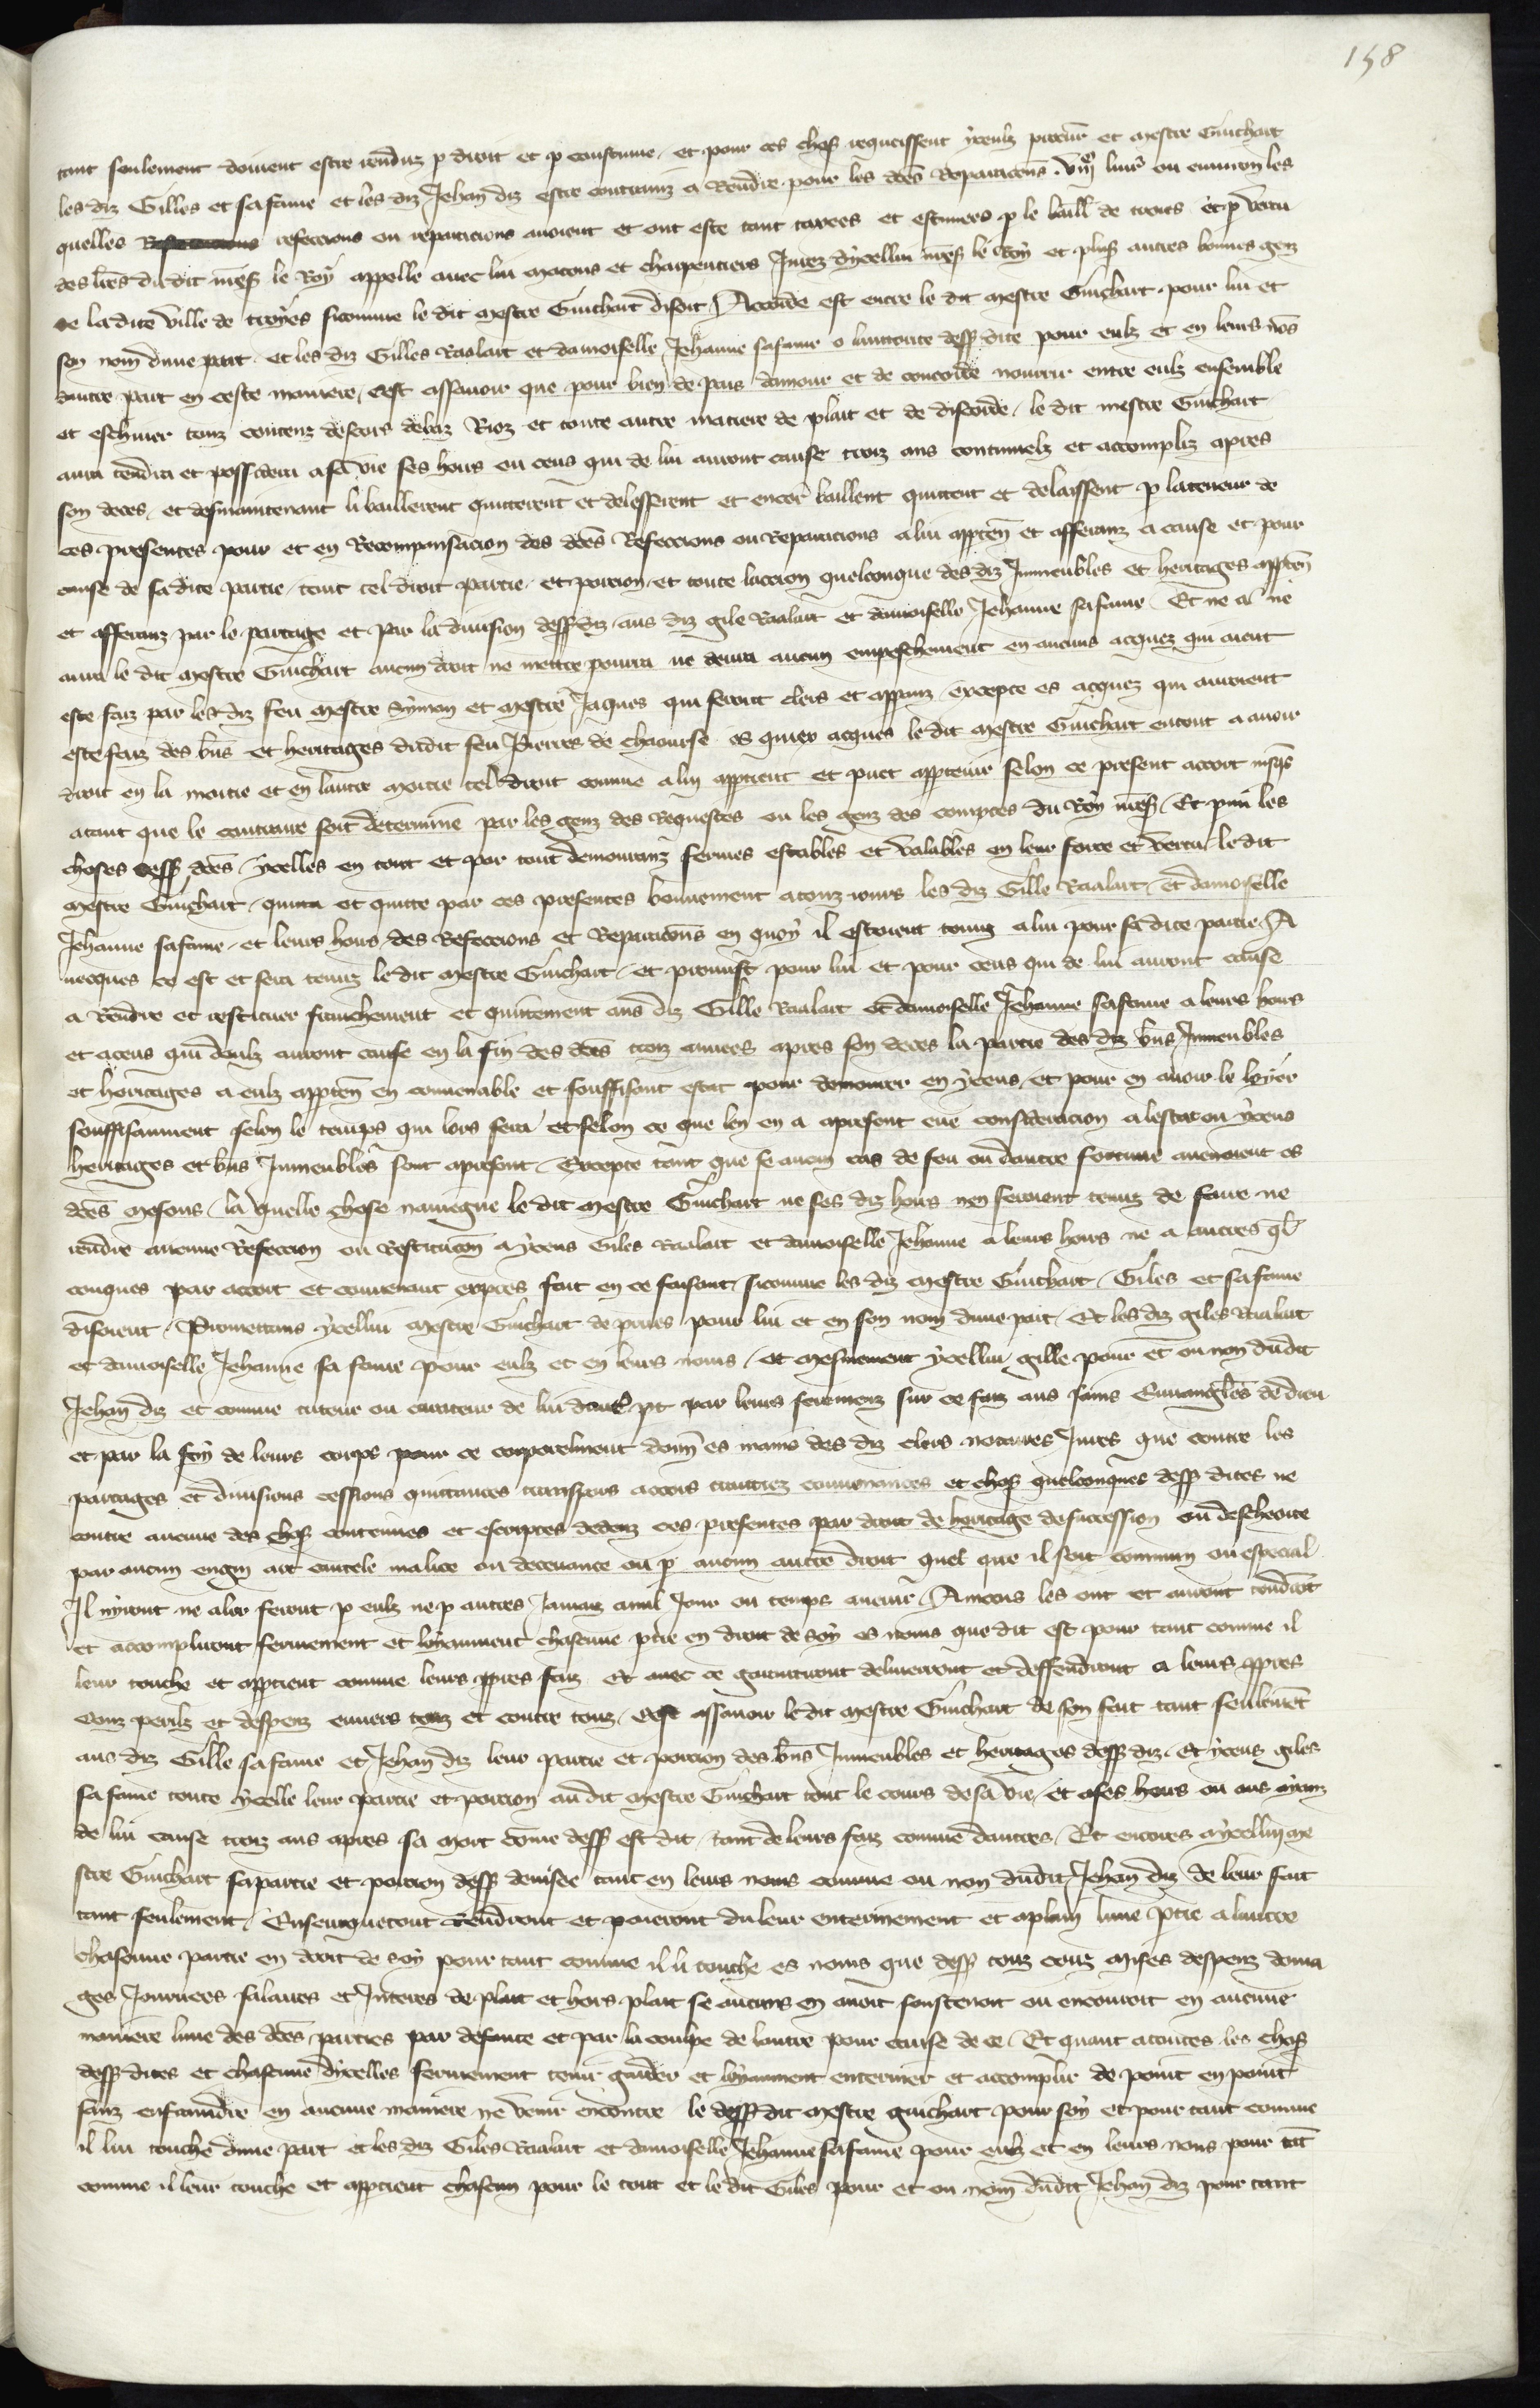 158
tant seulement doivent estre renduz p droit et p coustume, et pour ces choses requeissent yceulz procureur et mestre Guichart
les diz Gilles et sa fame et les diz Jehan diz estre contrainz a rendre pour les dces reparacions livr ou environ les
quelles refeccions ou reparacions avoient et ont este tant taxees et estimees p le baill de troies et p vertu
des lres du dit mess le Roy appelle avec lui macons et charpentiers Jurez dycellui mess le Roy et plus autres bonnes genz
de la dite ville de troyes si comme le dit mestre Guichart disoit / Accorde est entre le dit mestre Guichart pour lui et
son nom dune part et les diz Gilles Raalart et damoiselle Jehanne sa fame o lauctorite dess dite pour eulz et en leurs nos
dautre part en ceste maniere, cest assavoir que pour bien de pais damour et de concorde nourrir entre eulz ensemble
et eschiver touz contenz descors debaz Rioz et toute autre matiere de plait et de discorde, le dit mestre Guichart
aura tendra et possidera a sa vie ses hoirs ou ceus qui de lui auront cause trois ans continuelz et accompliz apres
son deces, et desmaintenant li baillerent quitterent et delesserent et encor baillent quittent et delaissent p la teneur de
ces presentes pour et en Recompansacion des dces Refeccions ou Reparacions a lui apptn et afferanz a cause et pour
cause de sa dite partie, tout tel droit partie et porcion et toute laccion quelconque des diz Inmeubles et heritages apptn
et afferanz par le partage et par la division dess diz aus diz gile Raalart et damoiselle Jehanne sa fame Et ne a ne
aura le dit mestre Guichart aucun droit ne mettre pourra ne devra aucun empeschement en aucuns acquez qui aient
este faiz par les diz feu mestre Symon et mestre Jaques qui seront clers et apparanz excepte es acquez qui auroient
este faiz des bns et heritages du dit feu Pierres de chaourse es quiex acques le dit mestre Guichart entent a avoir
droit en la moitie et en lautre moitie tel droit comme a lui apptient et puet apptenir selon ce present acort jusqs
atant que le contraire soit determine par les genz des Requestes ou les genz des comptes du Roy mess / Et pmi les
choses dess dces ycelles en tout et par tout demouranz fermes estables et valables en leur force et vertu le dit
mestre Guichart, quitta et quitte par ces presentes bonnement a touz jours les diz Gille Raalart et damoiselle
Jehanne sa fame et leurs hoirs des Refeccions et Reparacions en quoy il estoient tenuz a lui pour sa dite partie / A
uecques ce est et sera tenuz le dit mestre Guichart et promist pour lui et pour ceus qui de lui auront cause
a Rendre et restituer franchement et quittement aus diz Gille Raalart et damoiselle Jehanne sa fame a leurs hoirs
et a ceus qui deulz auront cause en la fin des dces trois annees apres son deces la partie des diz bns Inmeubles
et heritages a eulz apptn en convenable et souffisant estat pour demourer en yceus et pour en avoir le loyer
souffisanment selon le temps qui lors sera et selon ce que len en a apresent eue consideracion a lestat ou yceus
heritages et bns Inmeubles sont apresent. Excepte tant que se aucun cas de feu ou dautre fortune avenoient es
dces mesons, la quelle chose navegne le dit mestre Guichart ne ses diz hoirs nen seroient tenuz de faire ne
rendre aucune Refeccion ou Restitucion a yceus Giles Raalart et damoiselle Jehanne a leurs hoirs ne a autres qel
conques par acort et convenant expres fait en ce faisant, si comme les diz mestre Guichart, Giles et sa fame
disoient, Promettans ycellui mestre Guichart de pmes pour lui et en son nom dune part, Et les diz giles Raalart
et damoiselle Jehanne sa fame pour eulz et en leurs noms et mesmement ycellui gille pour et ou non dudit
Jehan diz et comme tuteur ou curateur de lui dautre pt par leurs seremenz sur ce faiz aus sains Euvangiles de dieu
et par la foy de leurs corps pour ce corporelment donn es mains des diz clers notaires Jures que contre les
partages et divisions cessions quittances transpors acors traictiez convenances et choses quelconques dess dites ne
contre aucune des choses contenues et escriptes dedenz ces presentes par droit de heritage de succession ou descheoite
par aucun engin art cautele malice ou decevance ou p aucun autre droit quel que il soit commun ou especial
Il nyront ne aler feront p eulz ne p autres Jamais a nul Jour ou temps avenir, Aincois les ont et auront tendront
et accompliront fermement et loyaument chascune ptie en droit de soy es noms que dit est pour tant comme il
leur touche et apptient comme leurs ppres faiz Et avec ce garantiront delivreront et deffendront a leurs ppres
couz perilz et despenz envers touz et contre touz, cest assavoir le dit mestre Guichart de son fait tant seulemt
aus diz Gille sa fame et Jehan diz leur partie et porcion des bns Inmeubles et heritages dess diz, Et yceus giles
sa fame toute ycelle leur partie et porcion au dit mestre Guichart tout le cours de sa vie et a ses hoirs ou aus aianz
de lui cause trois ans apres sa mort comme dess est dit tant de leurs faiz comme dautres, Et encores a ycellui me
stre Guichart sa partie et porcion dess devisee tant en leurs noms comme ou nom dudit Jehan diz de leur fait
tant seulement, Ensemquetout rendront et paieront du leur enterinement et a plain lune ptie a lautre
chascune partie en droit de soy pour tant comme il li touche es noms que dess touz couz mises despenz doma
ges Journees salaires et Interes de plait et hors plait se aucuns en avoit soustenoit ou encouroit en aucune
maniere lune des dces parties par defaute et par la coulpe de lautre pour cause de ce. Et quant a toutes les choses
dess dites et chascune dycelles fermement tenir garder et loyaument enteriner et accomplir de point en point
sanz enfraindre en aucune maniere ne venir encontre le dess dit mestre guichart pour soy et pour tant comme
il lui touche dune part et les diz Giles Raalart et damoiselle Jehanne sa fame pour eulz et en leurs noms pour tant
comme il leur touche et apptient chascun pour le tout et le dit Giles pour et ou nom dudit Jehan diz pour tant